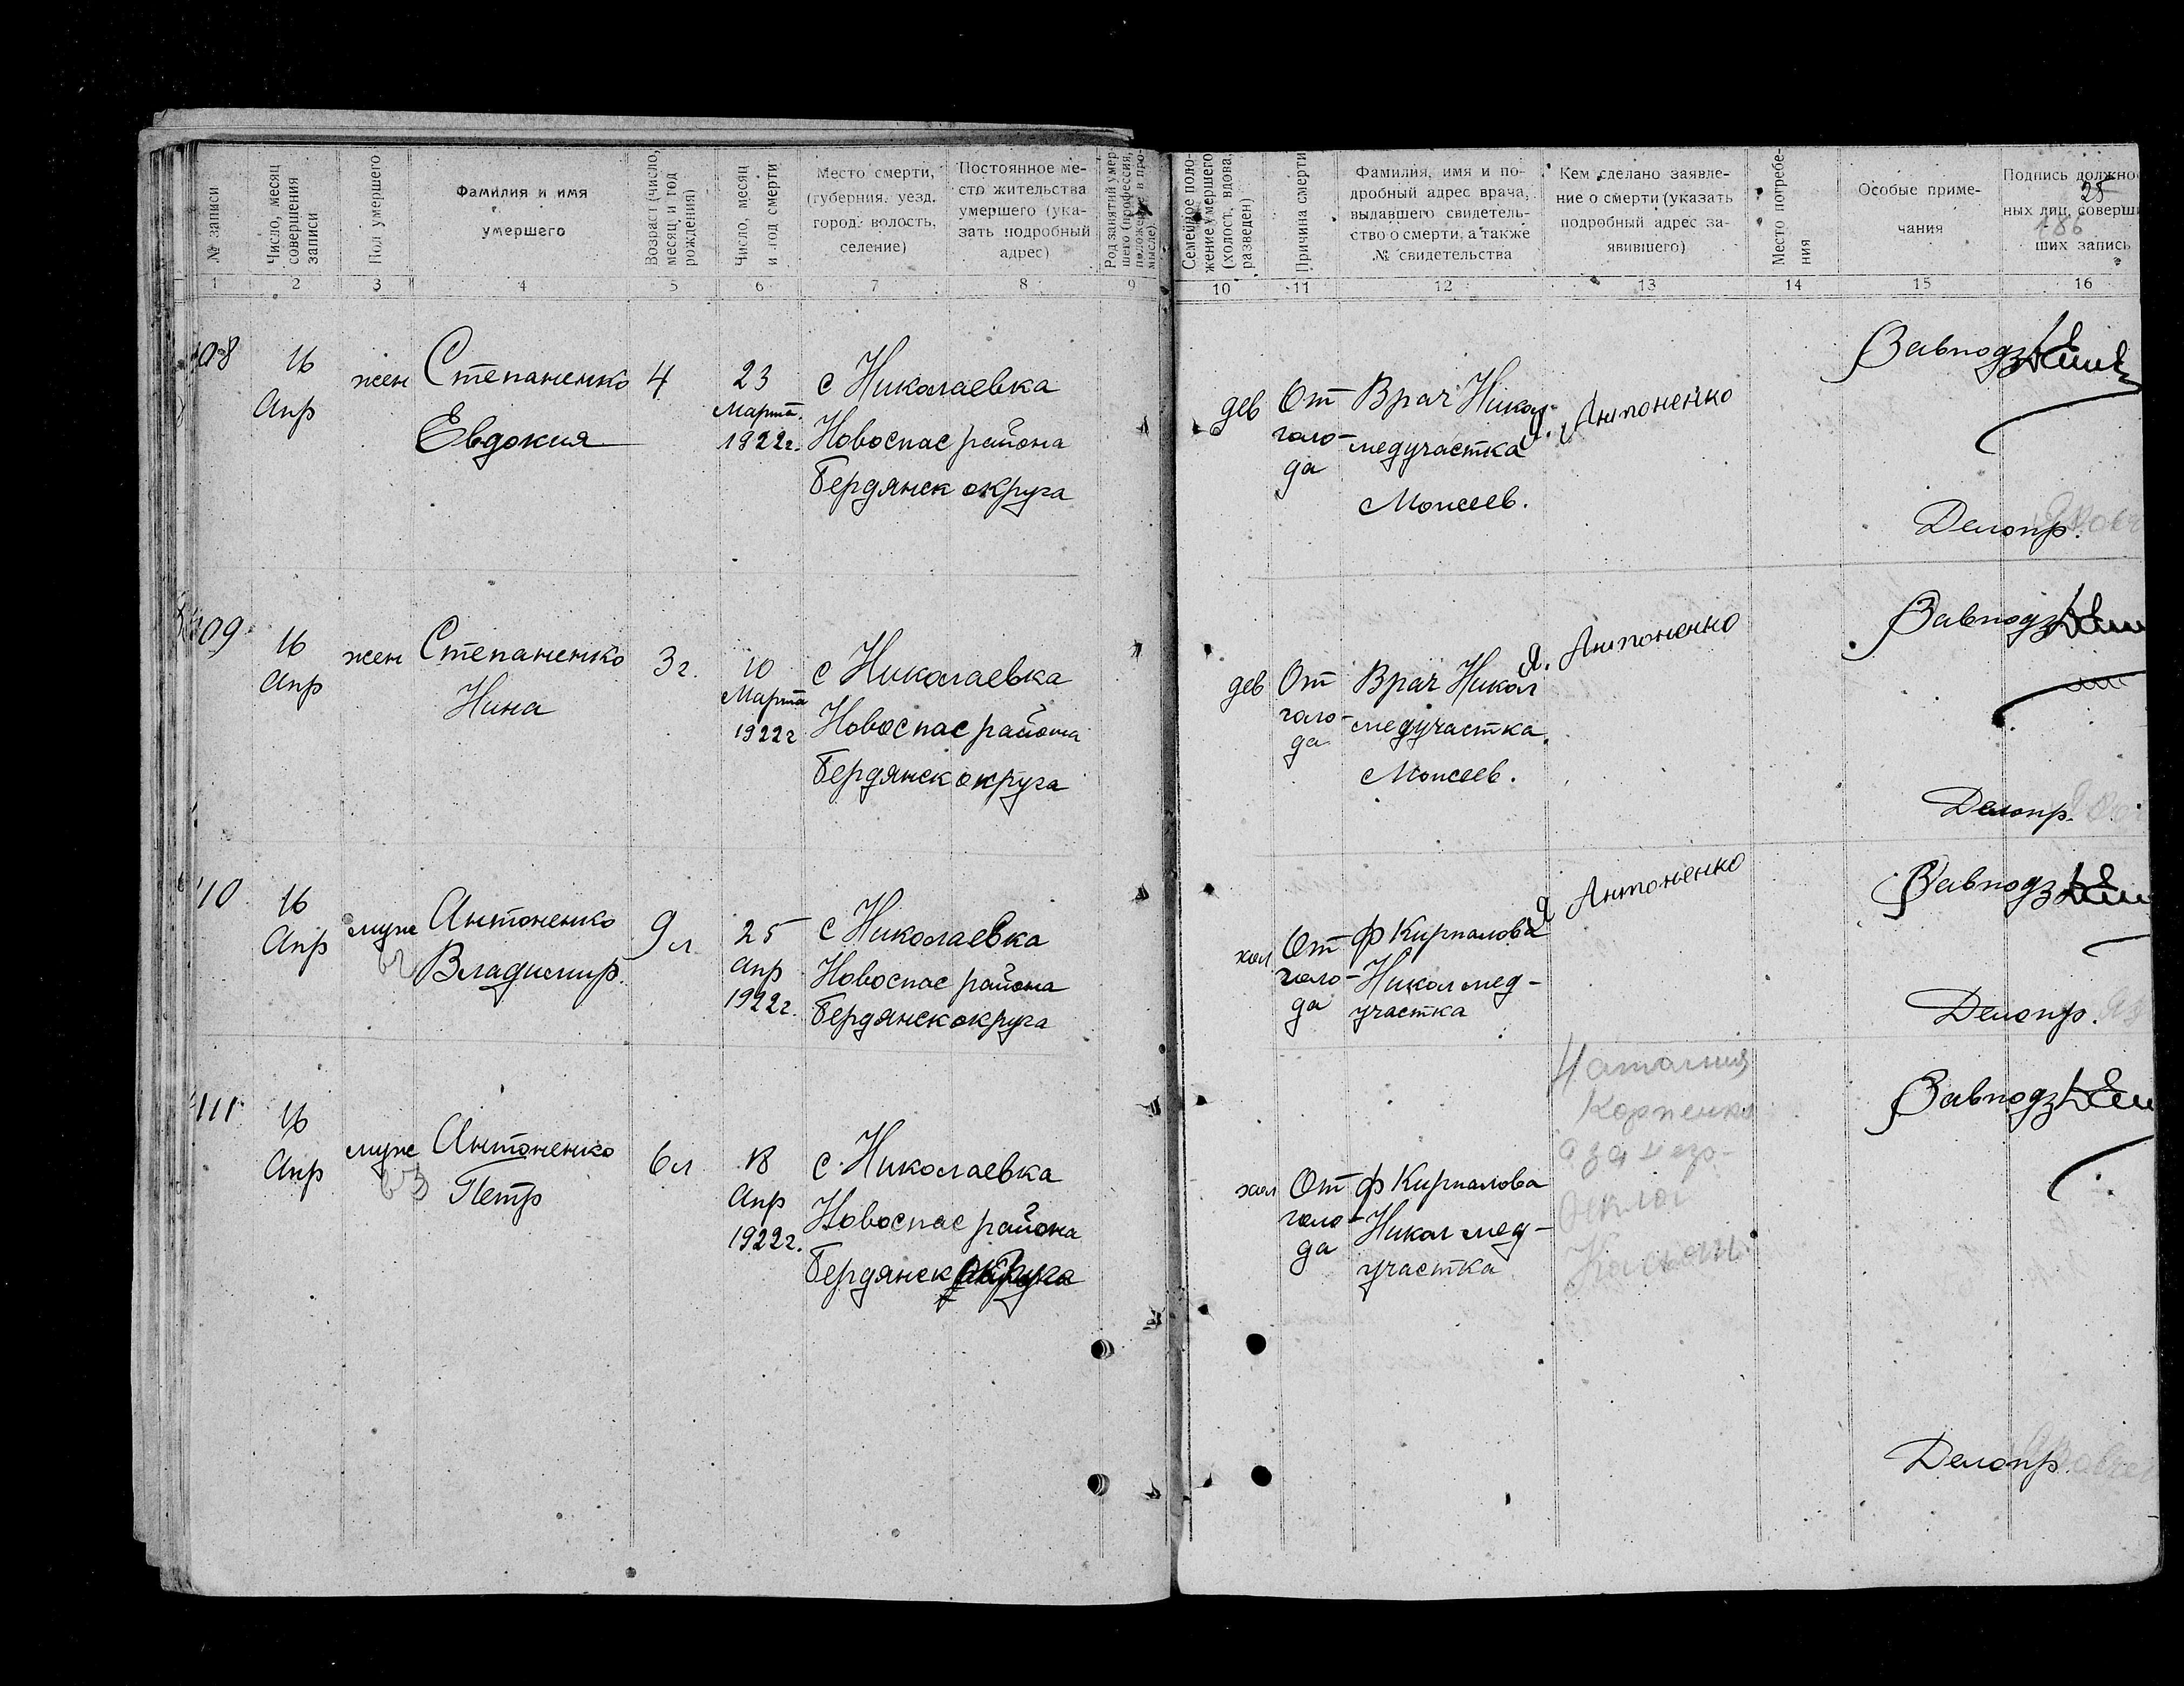 № записи
Число, месяц
совершения
записи
Пол умершего
Фамилия и имя
умершего
Возраст (число,
месяц и год
рождения)
Число, месяц
и год смерти
Место смерти,
(губерния, уезд,
город, волость,
селение)
Постоянное ме-
сто жительства
умершего (ука-
зать подробный
адрес)
Род занятий умер-
шего (профессия,
положение в про-
мысле)
Семейное поло-
жение умершего
(холост, вдова,
разведен)
Причина смерти
Фамилия, имя и по-
дробный адрес врача,
выдавшего свидетель-
ство о смерти, а также
№ свидетельства
Кем сделано заявле-
ние о смерти (указать
подробный адрес за-
явившего)
Место погребе-
ния
Особые приме-
чания
Подпись должно
ных лиц, соверши
ших запись
25
186
1 2 3 4 5 6 7 8 9 10 11 12 13 14 15 16
108
16
Апр
жен
Степаненко
Евдокия
4
23
Марта
1922г.
с Николаевка
Новоспас района
Бердянск округа
дев
От
голо-
да
Врач Никол
медучастка
Моисеев.
Я. Антоненко
Завподз
Делопр.
109
16
Апр
жен
Степаненко
Нина
3г.
10
Марта
1922г
с Николаевка
Новоспас района
Бердянск округа
дев
От
голо-
да
Врач Никол
медучастка
Моисеев.
Я. Антоненко
Завподз
Делопр.
110
16
Апр
муж
Антоненко
Владимир.
9л
25
Апр
1922г.
с Николаевка
Новоспас района
Бердянск округа
хол
От
голо-
да
Ф Кирпалова
Никол мед-
участка
Я Антоненко
Завподз
Делопр.
111
16
Апр
муж
63
Антоненко
Петр
6л
18
Апр
1922г.
с. Николаевка
Новоспас района
Бердянск округа
хол
От
голо-
да
ф Кирпалова
Никол мед-
участка
Наталия
Корпенко
а за негр-
Завподз
Делопр.